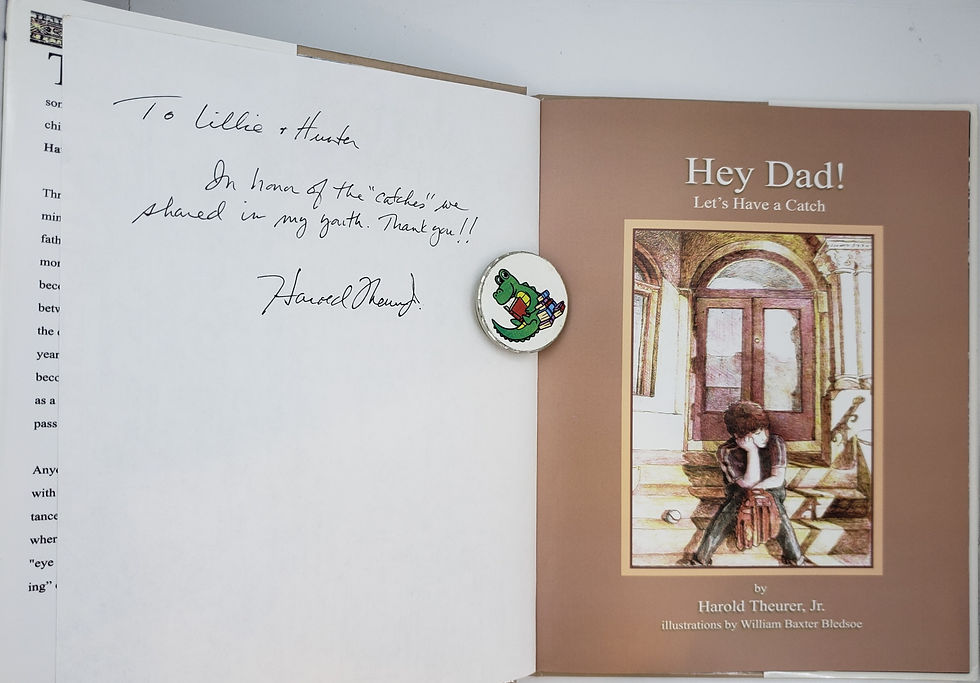 T
som
chi
Ha
Thr
min
fath
mor
beco
betw
the
year
beco
as a
pass
Anyo
with
tance
wher
"eye
ing"
To Lillie + Hunter
In honor of the "catches" we
shared in my youth. Thank you!!
Harold Theurer Jr.
Hey Dad!
Let's Have a Catch
by
Harold Theurer, Jr.
illustrations by William Baxter Bledsoe